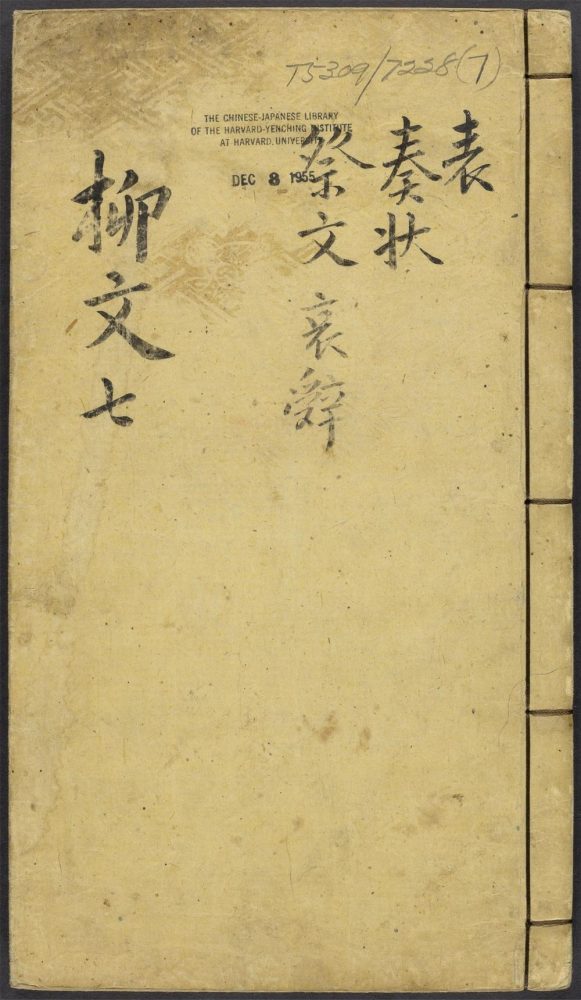 T5309/7228(7)
THE CHINESE-JAPANESE LIBRARY
OF THE HARVARD-YENCHING INSTITUTE
AT HARVARD UNIVERSITY
DEC 8 1955
表
奏状
祭文 哀辭
柳文 七